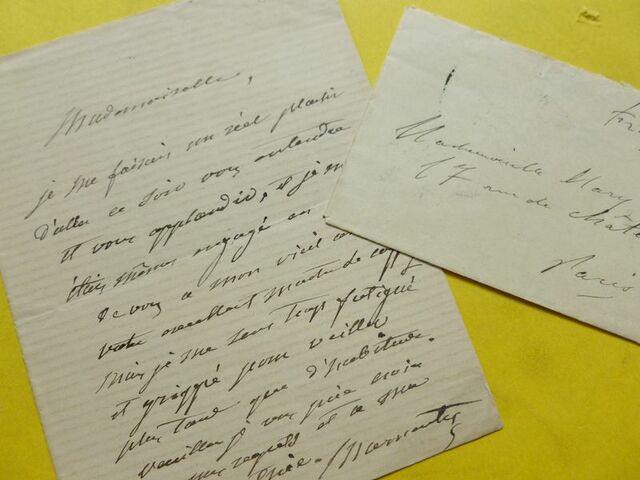 Mademoiselle,
je me faisais un réel plaisir
d'aller ce soir vous entendre
et vous applaudir, et je m'
étais même engagé en
de vous à mon vieil
votre excellent
mais je me sens trop fatigué
et grippé pour veiller
plus tard que d'habitude.
Veuillez je vous prie croire
regrets et à ma
Mademoiselle Mary
17 rue de
Paris